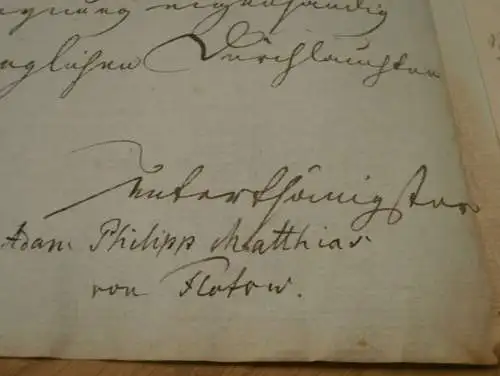 eigenhändig
Durchlauchten
unterthänigster
Adam Philipp Matthias
von Flotow.